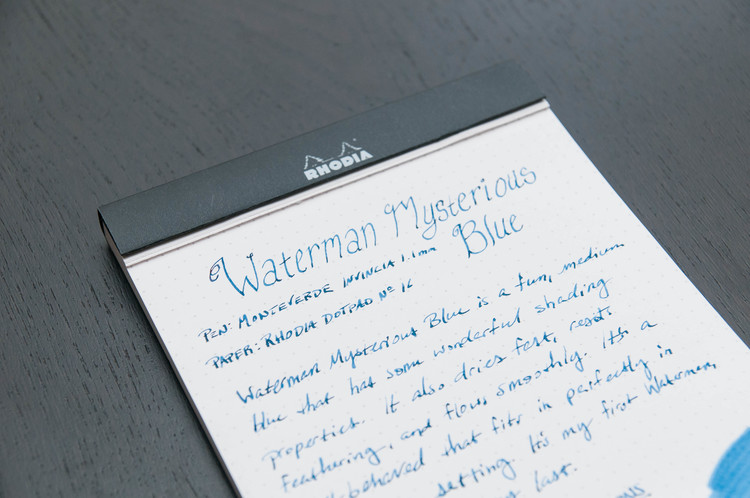 RHODIA
Waterman Mysterious
Blue
PEN: MONTEVERDE INVINCIA 1.1mm
PAPER: RHODIA DOTPAD Nº 16
Waterman Mysterious Blue is a fun, medium
blue that has some wonderful shading
properties. It also dries fast, resists
feathering, and flows smoothly. It's a
-behaved that fits in perfectly in
setting. It's my first Waterman,
last.